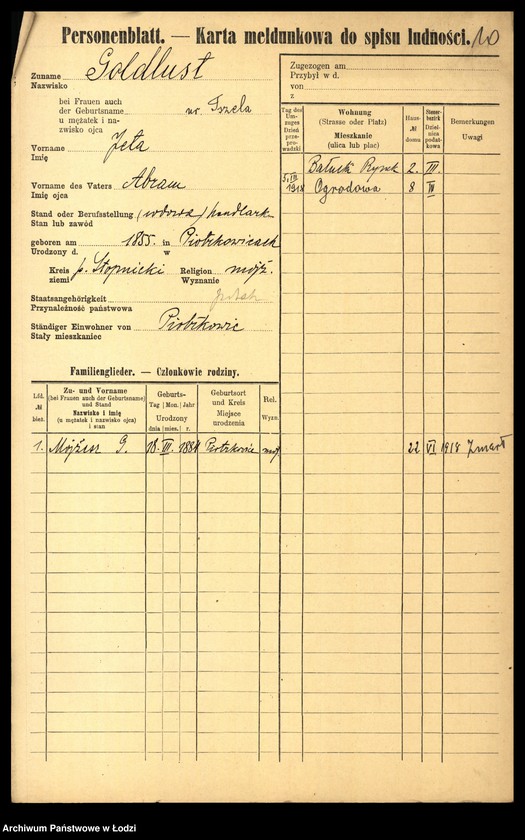 Personenblatt. — Karta meldunkowa do spisu ludności. 10
Zuname Goldlust
Nazwisko
bei Frauen auch
der Geburtsname
u mężatek i na-
zwisko ojca
ur.
Vorname Jeta
Imię
Vorname des Vaters Abram
Imię ojca
Stand oder Berufsstellung (wdowa) handlark
Stan lub zawód
geboren am 1855. in Piotrkowicach
Urodzony d. w
Kreis p. Stopnicki Religion mojż.
ziemi Wyznanie
Staatsangehörigkeit
Przynależność państwowa
Ständiger Einwohner von Piotrkowic
Stały mieszkaniec
Familienglieder. — Członkowie rodziny.
Lfd.
№
bież.
Zu- und Vorname
(bei Frauen auch der Geburtsname)
und Stand
Nazwisko i imię
(u mężatek i nazwisko ojca)
i stan
Geburts-
Tag | Mon. | Jahr
Urodzony
dnia | mies. | r.
Geburtsort
und Kreis
Miejsce
urodzenia
Rel.
Wyzn.
1. Mojżesz G. 18 III. 1884 Piotrkowic mojż
Zugezogen am
Przybył w d.
von
z
Tag des
Um-
zuges
Dzień
prze-
prowadzki
Wohnung
(Strasse oder Platz)
Mieszkanie
(ulica lub plac)
Haus-
№
domu
Steuer-
bezirk
Dziel-
nica
podat-
kowa
Bemerkungen
Uwagi
Bałuck Rynek 2. III.
5. III 1918 Ogrodowa 8 III
22 VI 1918 Zmarł
Archiwum Państwowe w Łodzi